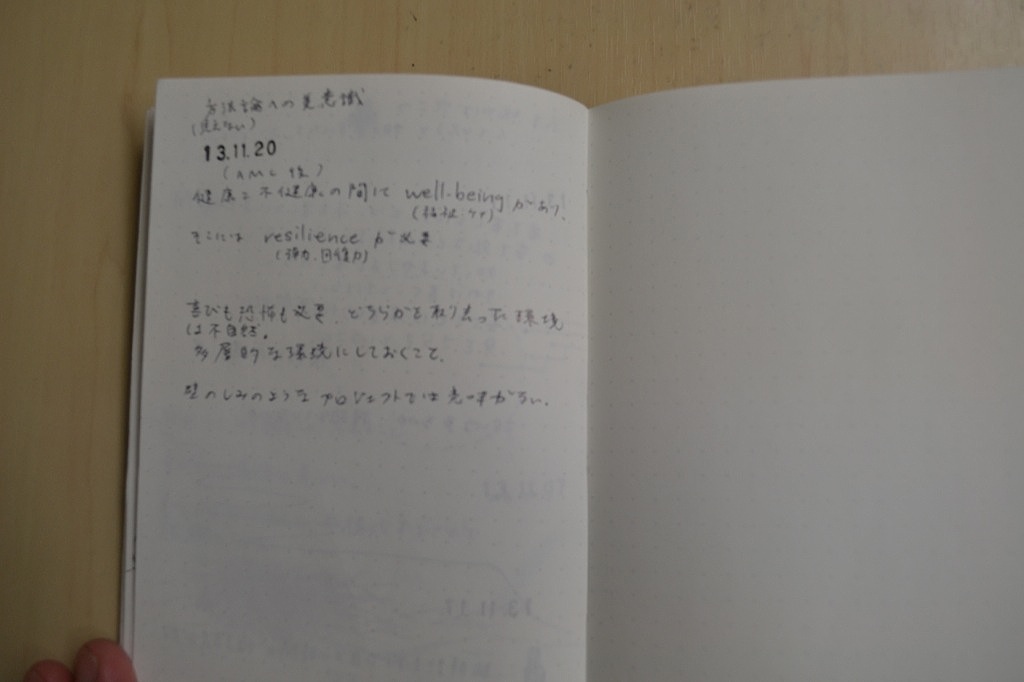 方法論への美意識
(見えない)
13.11.20
(AMC後)
健康と不健康の間に well-being があり、
(福祉・ケア)
そこには resilience が必要
(弾力、回復力)
喜びも恐怖も必要、どちらかを取り去った環境
は不自然。
多層的な環境にしておくこと。
のしみのようなプロジェクトでは